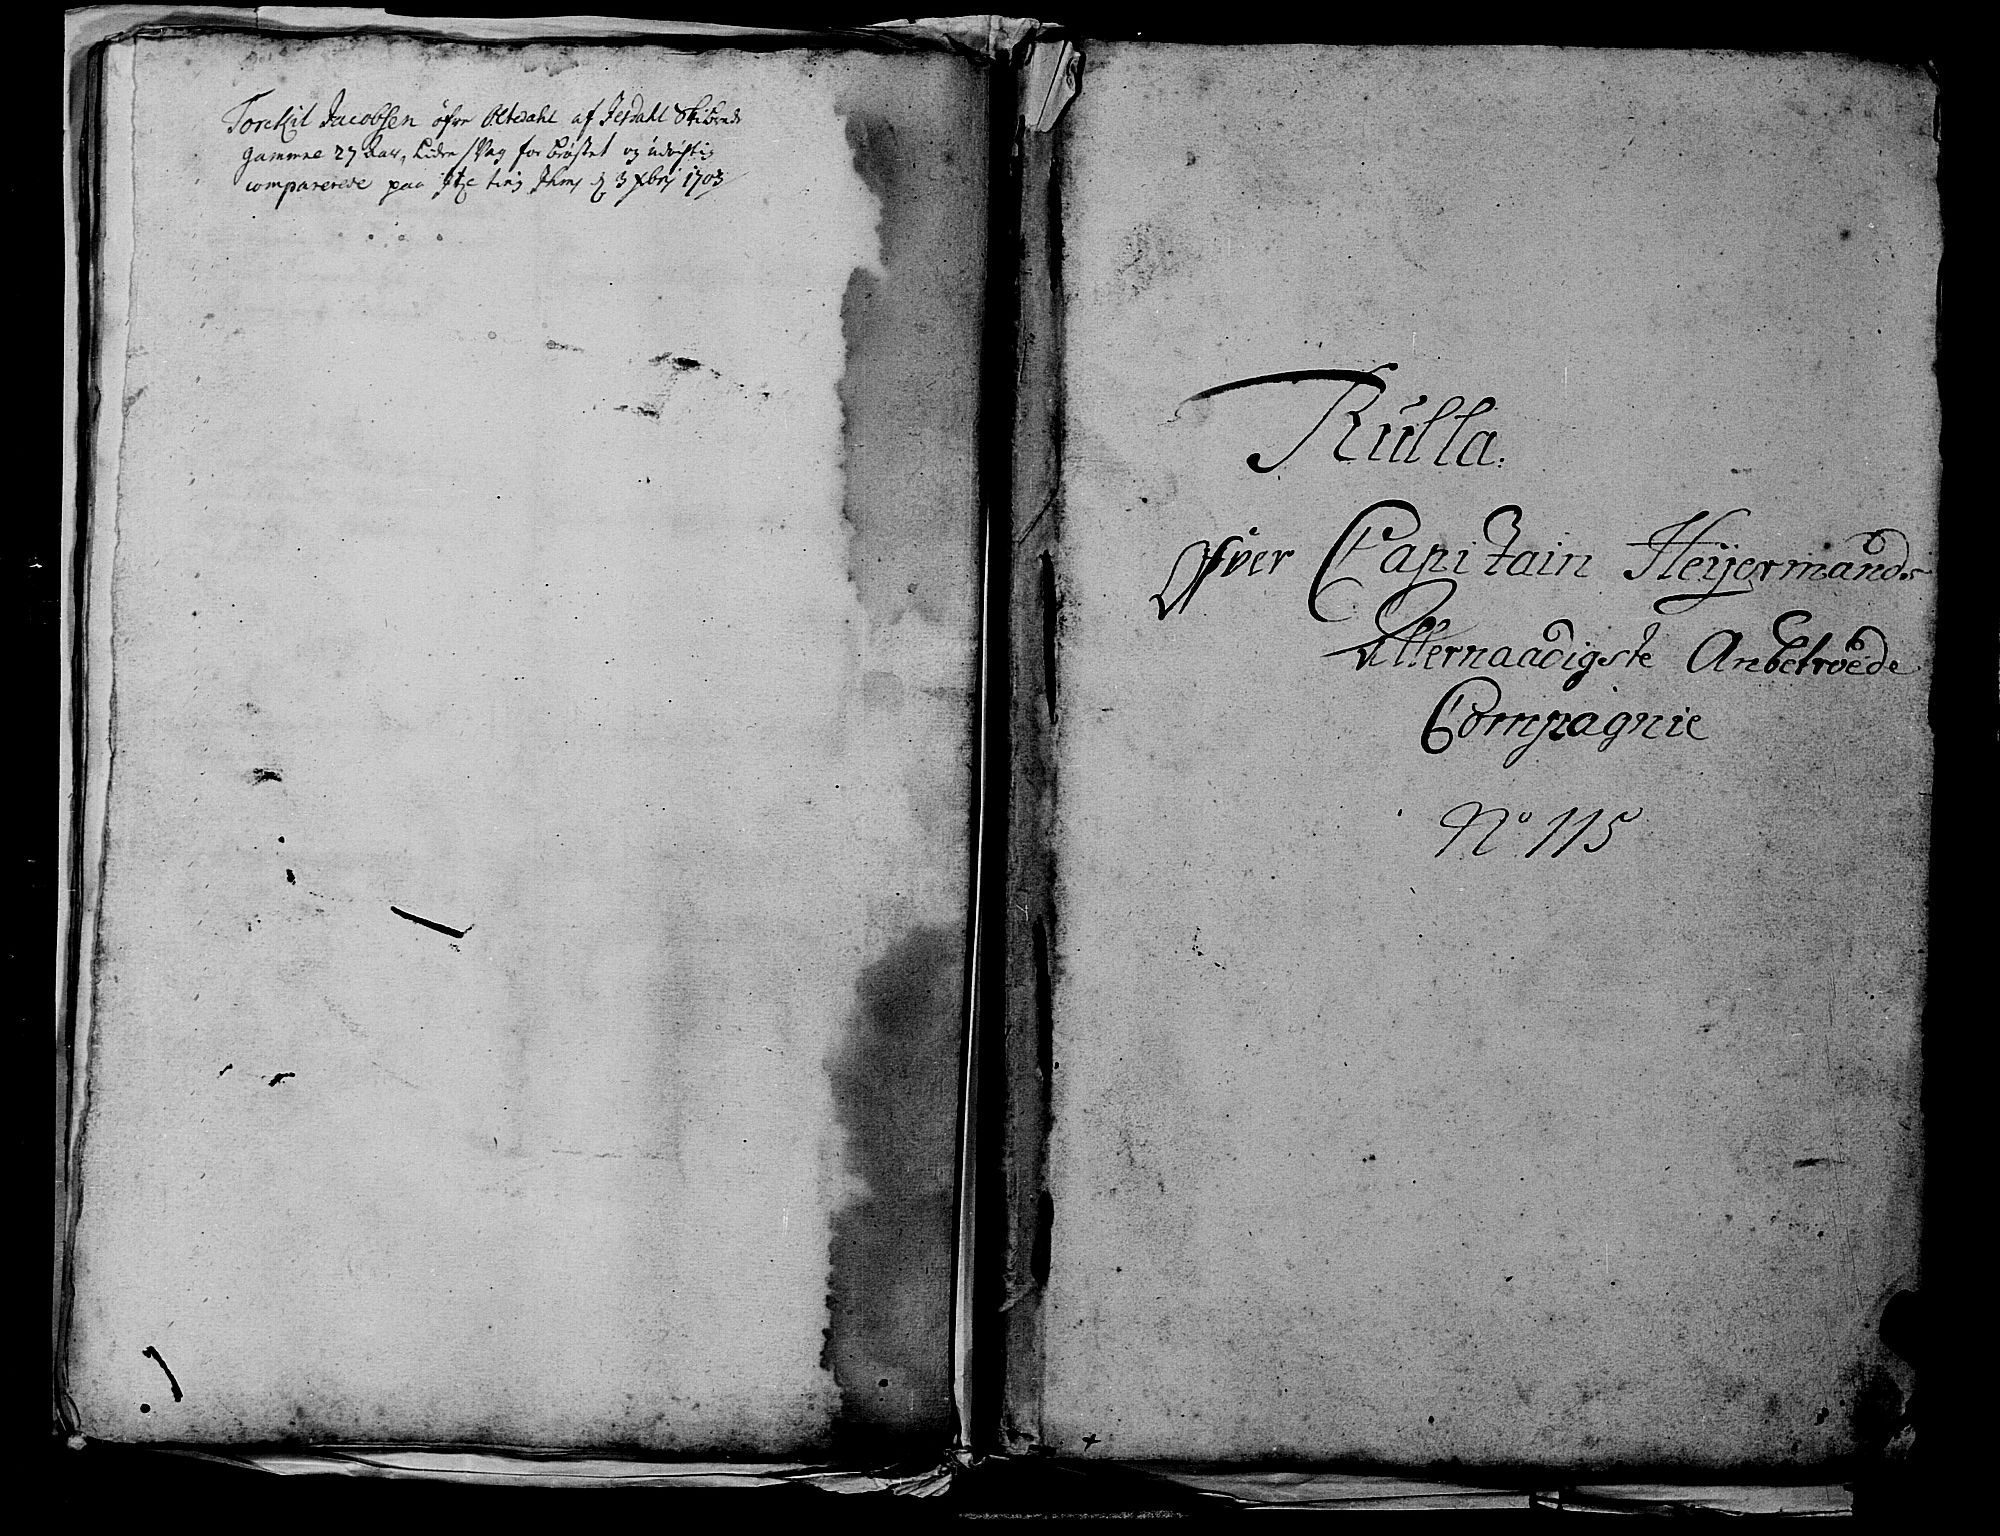 Torckil Jacobsen öfre Oltedahl af Jesdahl Skibrede
gammel 27 Aar, Liden svag for brÿstet og udÿgtig
comparerede paa ting d 3 xbrj 1703
Rulla.
Ofver Capitain Heÿermands
Allernaadigste Anbetroede
Compagnie
No 115